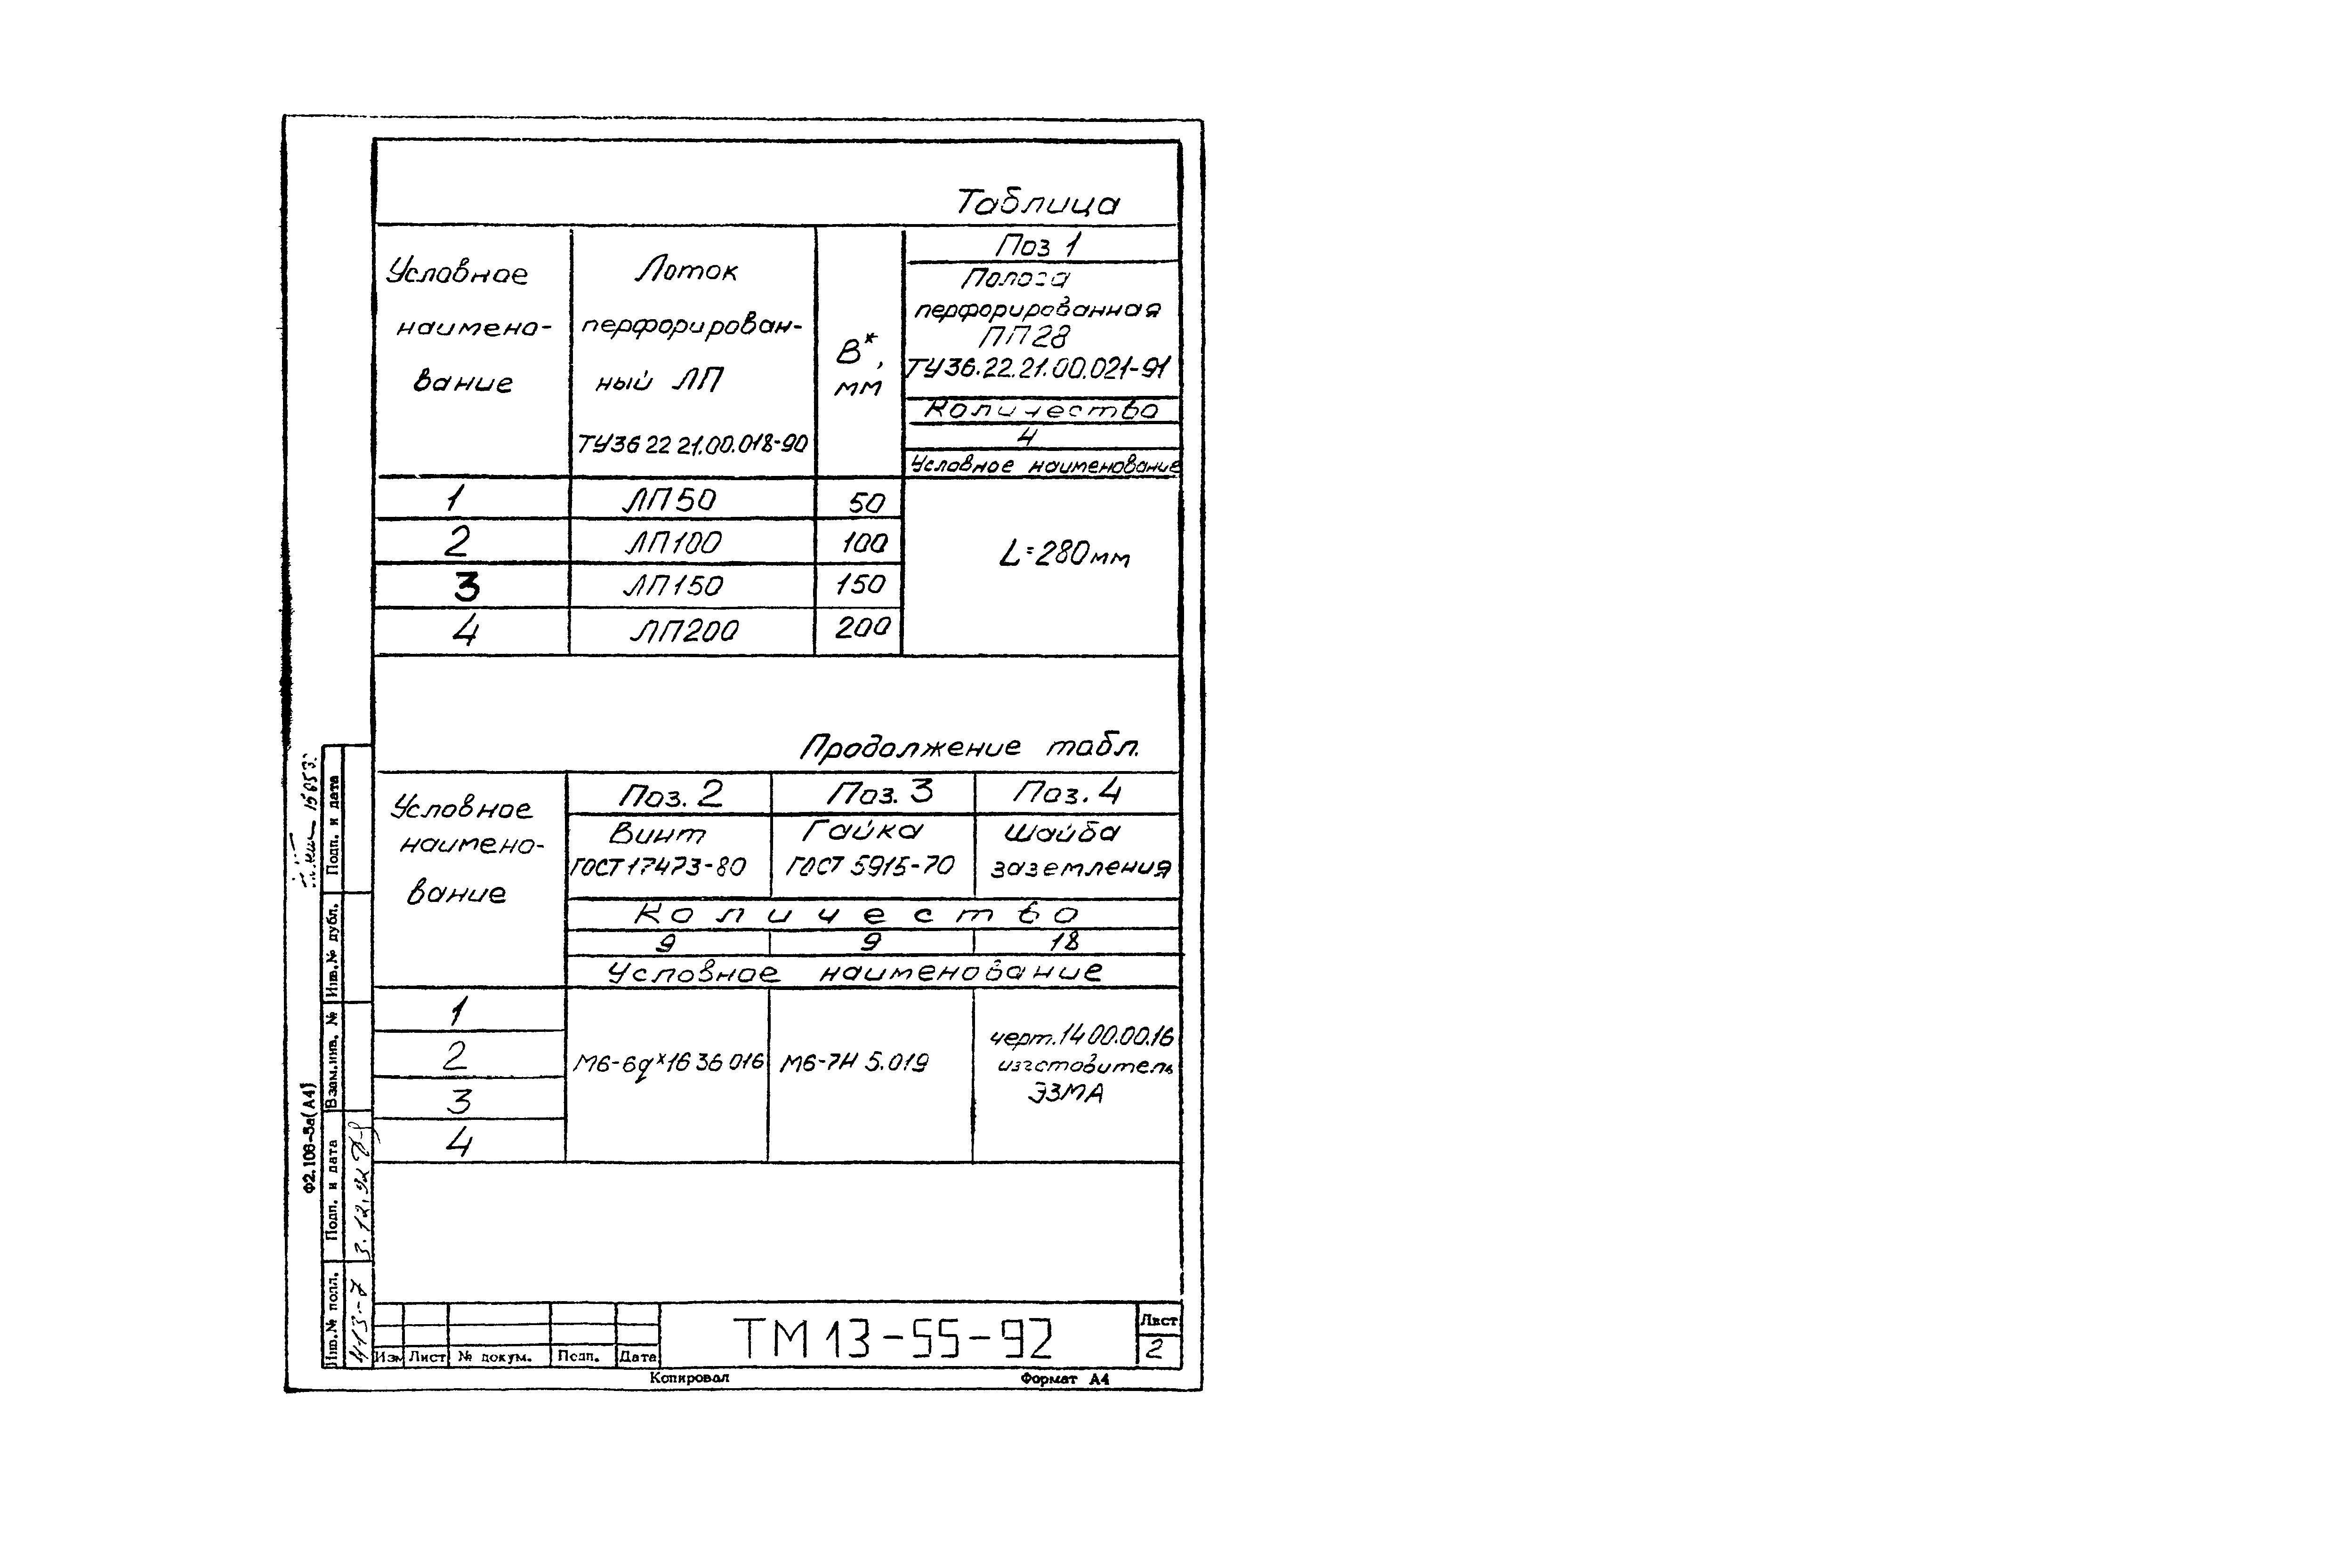 Таблица
Условное
наимено-
вание
Лоток
перфорирован-
ный ЛП
ТУ36 22 21.00.018-90
В*,
мм
Поз 1
Полоса
перфорированная
ПП28
ТУ36.22.21.00.021-91
Количество
4
Условное наименование
1 ЛП50 50
2 ЛП100 100
3 ЛП150 150
4 ЛП200 200
L=280мм
Продолжение табл.
Условное
наимено-
вание
Поз. 2 Поз. 3 Поз. 4
Винт
ГОСТ17473-80
Гайка
ГОСТ 5915-70
Шайба
заземления
Количество
9 9 18
Условное наименование
1
2
3
4
М6-6qx16 36 016
М6-7Н 5.019
черт.14 00.00.16
изготовитель
ЭЗМА
Подп. и дата
Инв.№ дубл.
Взам.инв. №
Подп. и дата
3.12.92
Инв.№ подл.
413-7
Ф2.106-5а(А4)
Изм Лист № докум. Подп. Дата
ТМ13-55-92
Лист
2
Копировал
Формат А4